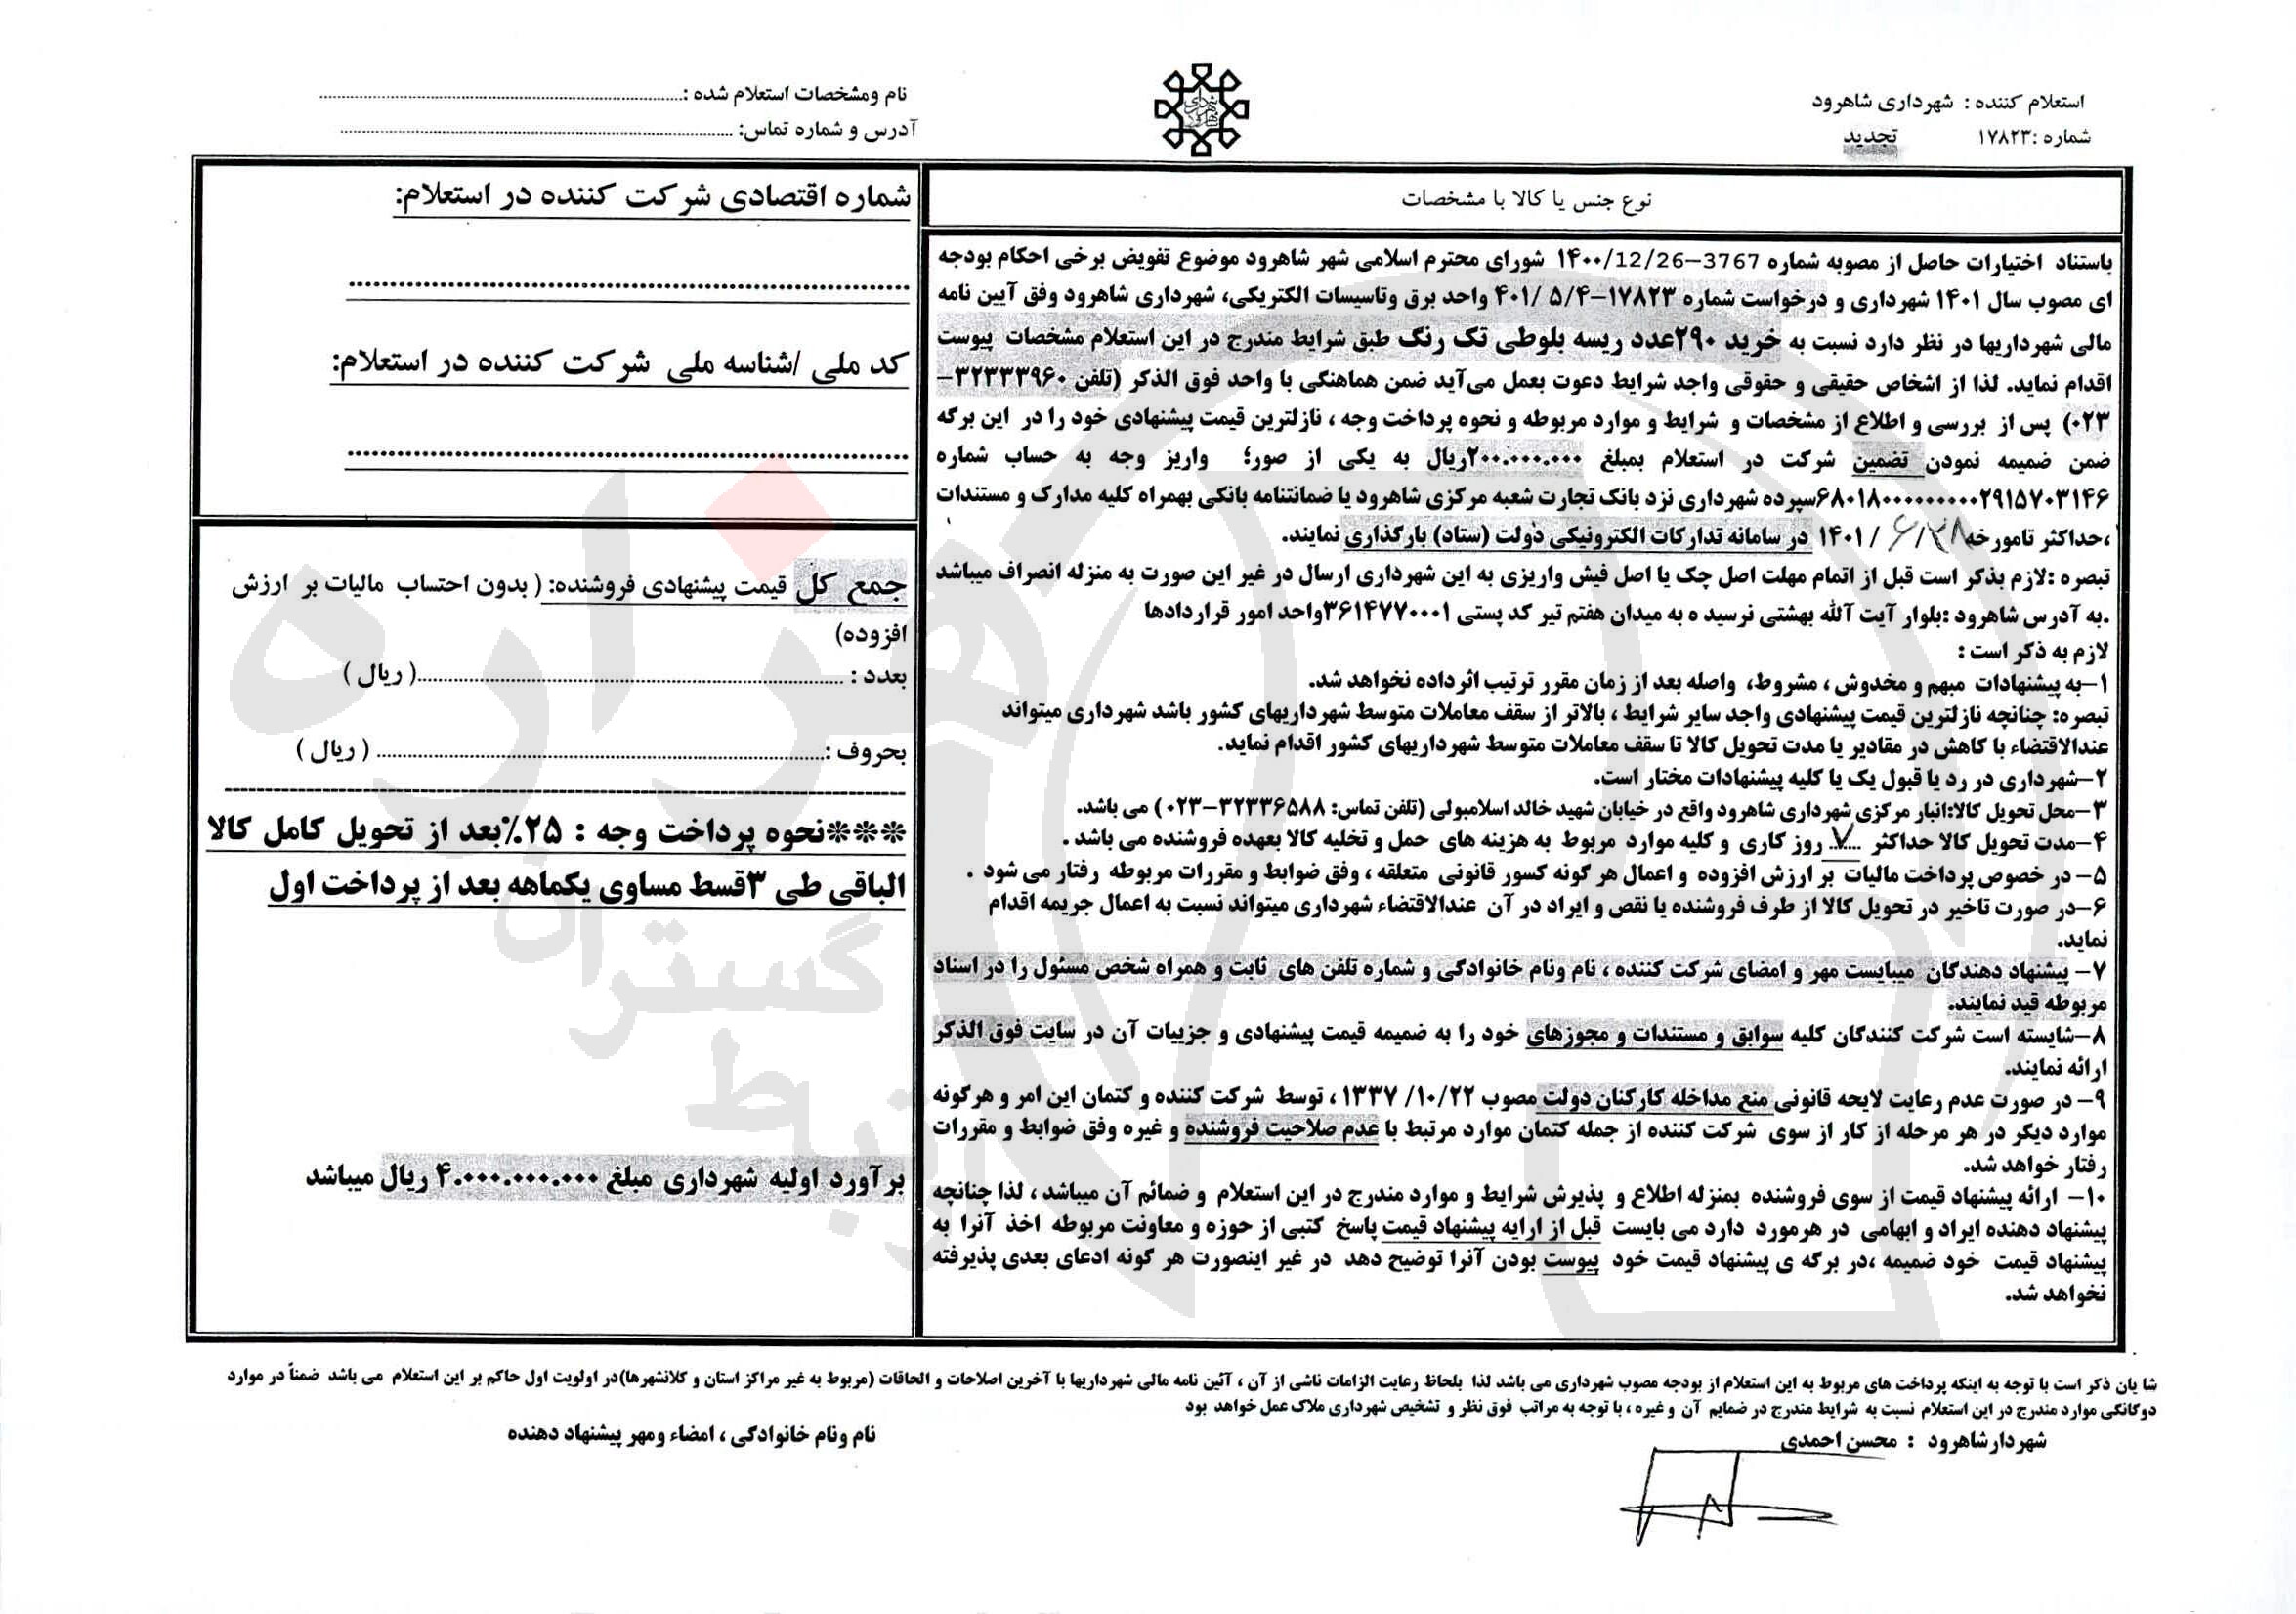 استعلام کننده : شهرداری شاهرود
شماره :۱۷۸۲۳ تجدید
نام ومشخصات استعلام شده :
آدرس و شماره تماس:
نوع جنس یا کالا با مشخصات
باستناد اختیارات حاصل از مصوبه شماره 3767-۱۴۰۰/12/26 شورای محترم اسلامی شهر شاهرود موضوع تفویض برخی احکام بودجه
ای مصوب سال ۱۴۰۱ شهرداری و درخواست شماره ۱۷۸۲۳-۵/۴ /۴۰۱ واحد برق وتاسیسات الکتریکی، شهرداری شاهرود وفق آیین نامه
مالی شهرداریها در نظر دارد نسبت به خرید ۲۹۰عدد ریسه بلوطی تک رنگ طبق شرایط مندرج در این استعلام مشخصات پیوست
اقدام نماید. لذا از اشخاص حقیقی و حقوقی واجد شرایط دعوت بعمل می‌آید ضمن هماهنگی با واحد فوق الذکر (تلفن ۳۲۳۳۳۹۶۰-
۰۲۳) پس از بررسی و اطلاع از مشخصات و شرایط و موارد مربوطه و نحوه پرداخت وجه ، نازلترین قیمت پیشنهادی خود را در این برگه
ضمن ضمیمه نمودن تضمین شرکت در استعلام بمبلغ ۲۰۰.۰۰۰.۰۰۰ریال به یکی از صور؛ واریز وجه به حساب شماره
۶۸۰۱۸۰۰۰۰۰۰۰۰۰۰۲۹۱۵۷۰۳۱۴۶سپرده شهرداری نزد بانک تجارت شعبه مرکزی شاهرود یا ضمانتنامه بانکی بهمراه کلیه مدارک و مستندات
،حداکثر تامورخه ۲۸/ ۶ / ۱۴۰۱ در سامانه تدارکات الکترونیکی دولت (ستاد) بارگذاری نمایند.
تبصره :لازم بذکر است قبل از اتمام مهلت اصل چک یا اصل فیش واریزی به این شهرداری ارسال در غیر این صورت به منزله انصراف میباشد
.به آدرس شاهرود :بلوار آیت آلله بهشتی نرسیده ه به میدان هفتم تیر کد پستی ۳۶۱۴۷۷۰۰۰۱واحد امور قراردادها
لازم به ذکر است :
۱-به پیشنهادات مبهم و مخدوش ، مشروط، واصله بعد از زمان مقرر ترتیب اثرداده نخواهد شد.
تبصره: چنانچه نازلترین قیمت پیشنهادی واجد سایر شرایط ، بالاتر از سقف معاملات متوسط شهرداریهای کشور باشد شهرداری میتواند
عندالاقتضاء با کاهش در مقادیر یا مدت تحویل کالا تا سقف معاملات متوسط شهرداریهای کشور اقدام نماید.
۲-شهرداری در رد یا قبول یک یا کلیه پیشنهادات مختار است.
۳-محل تحویل کالا:انبار مرکزی شهرداری شاهرود واقع در خیابان شهید خالد اسلامبولی (تلفن تماس: ۳۲۳۳۶۵۸۸-۰۲۳) می باشد.
۴-مدت تحویل کالا حداکثر ۷ روز کاری و کلیه موارد مربوط به هزینه های حمل و تخلیه کالا بعهده فروشنده می باشد .
۵- در خصوص پرداخت مالیات بر ارزش افزوده و اعمال هر گونه کسور قانونی متعلقه ، وفق ضوابط و مقررات مربوطه رفتار می شود .
۶-در صورت تاخیر در تحویل کالا از طرف فروشنده یا نقص و ایراد در آن عندالاقتضاء شهرداری میتواند نسبت به اعمال جریمه اقدام
نماید.
۷- پیشنهاد دهندگان میبایست مهر و امضای شرکت کننده ، نام ونام خانوادگی و شماره تلفن های ثابت و همراه شخص مسئول را در اسناد
مربوطه قید نمایند.
۸-شایسته است شرکت کنندگان کلیه سوابق و مستندات و مجوزهای خود را به ضمیمه قیمت پیشنهادی و جزییات آن در سایت فوق الذکر
ارائه نمایند.
۹- در صورت عدم رعایت لایحه قانونی منع مداخله کارکنان دولت مصوب ۱۰/۲۲/ ۱۳۳۷ ، توسط شرکت کننده و کتمان این امر و هرگونه
موارد دیگر در هر مرحله از کار از سوی شرکت کننده از جمله کتمان موارد مرتبط با عدم صلاحیت فروشنده و غیره وفق ضوابط و مقررات
رفتار خواهد شد.
۱۰- ارائه پیشنهاد قیمت از سوی فروشنده بمنزله اطلاع و پذیرش شرایط و موارد مندرج در این استعلام و ضمائم آن میباشد ، لذا چنانچه
پیشنهاد دهنده ایراد و ابهامی در هرمورد دارد می بایست قبل از ارایه پیشنهاد قیمت پاسخ کتبی از حوزه و معاونت مربوطه اخذ آنرا به
پیشنهاد قیمت خود ضمیمه ،در برگه ی پیشنهاد قیمت خود پیوست بودن آنرا توضیح دهد در غیر اینصورت هر گونه ادعای بعدی پذیرفته
نخواهد شد.
شماره اقتصادی شرکت کننده در استعلام:
کد ملی /شناسه ملی شرکت کننده در استعلام:
جمع کل قیمت پیشنهادی فروشنده: ( بدون احتساب مالیات بر ارزش
افزوده)
بعدد : ( ریال )
بحروف : ( ریال )
***نحوه پرداخت وجه : ۲۵٪بعد از تحویل کامل کالا
الباقی طی ۳قسط مساوی یکماهه بعد از پرداخت اول
برآورد اولیه شهرداری مبلغ ۴.۰۰۰.۰۰۰.۰۰۰ ریال میباشد
شا یان ذکر است با توجه به اینکه پرداخت های مربوط به این استعلام از بودجه مصوب شهرداری می باشد لذا بلحاظ رعایت الزامات ناشی از آن ، آئین نامه مالی شهرداریها با آخرین اصلاحات و الحاقات (مربوط به غیر مراکز استان و کلانشهرها)در اولویت اول حاکم بر این استعلام می باشد ضمناً در موارد
دوگانگی موارد مندرج در این استعلام نسبت به شرایط مندرج در ضمایم آن و غیره ، با توجه به مراتب فوق نظر و تشخیص شهرداری ملاک عمل خواهد بود
شهردارشاهرود : محسن احمدی
نام ونام خانوادگی ، امضاء ومهر پیشنهاد دهنده
هزاره
گستران